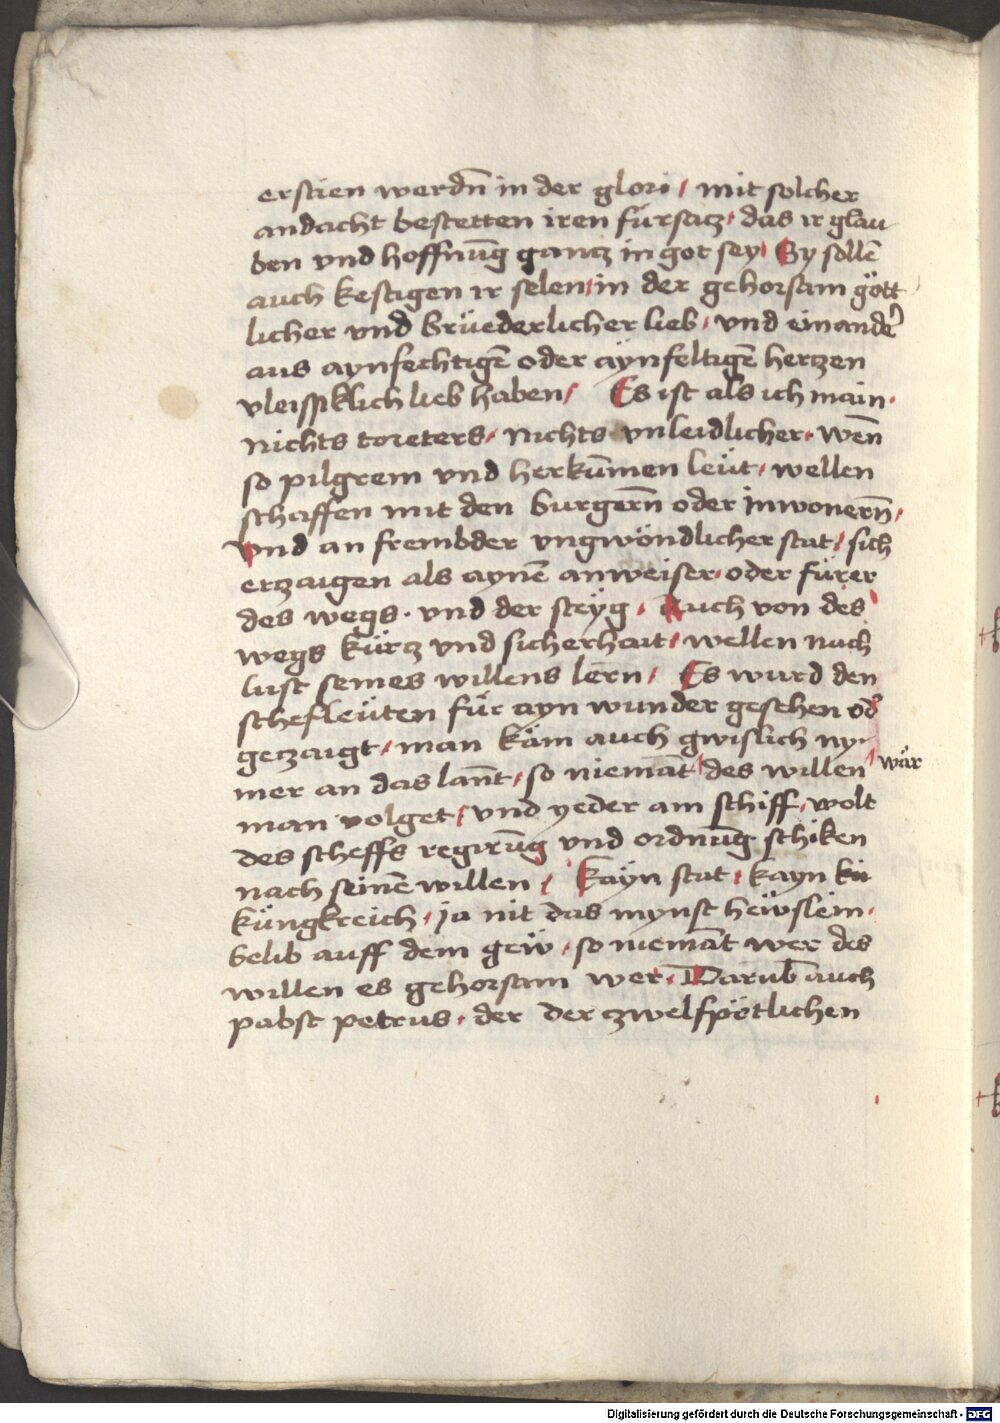 erstien werdn̄ in der glori / mit solcher
andacht bestetten iren fürsatz / das ir glau
ben vnd hoffnūg gantz in got sey / Sy sollē
auch kestigen ir selen / in der gehorsam gött
licher vnd brüederlicher lieb / vnd einandeʳ
aus aynfechtigē oder aÿnfeltigē hertzen
vleissiklich lieb haben / Es ist als ich main ·
nichts toreters / nichts vnleidlicher · wen̄
so pilgrem vnd herkūmen leüt / wellen
schaffen mit den burgern̄ oder inwonern̄ /
vnd an frembder vngwöndlicher stat / sich
ertzaigen als aynē anweiser / oder fürer
des wegs · vnd der steÿg / Auch von des
wegs kürtz vnd sicherhait / wellen nach
lust seines willens lern̄ / Es wurd den
schefleüten für ayn wunder gesehen odʳ
getzaigt / man käm auch gwislich nyⁿ
mer an das lan̄t / so niemāt / des willen / wär
man volget / vnd yeder am schiff / wolt
des scheffs regirūg vnd ordnūg schiken
nach seinē willen / kaÿn stat / kayn kü
küngkreich / ja nit das mynst hëwslein /
belib auff dem gew̄ / so niemāt wer des
willen es gehorsam wer / Darub̄ auch
pabst petrus / der der zwelfpötlichen
Digitalisierung gefördert durch die Deutsche Forschungsgemeinschaft - DFG